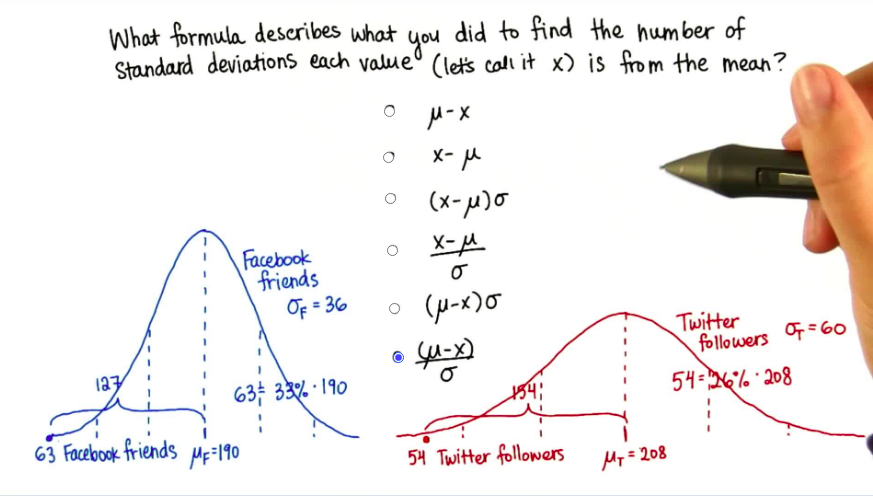 What formula describes what you did to find the number of
Standard deviations each value (let's call it x) is from the mean?
μ-x
x-μ
(x-μ)σ
x-μ
σ
(μ-x)σ
(μ-x)
σ
Facebook
friends
σF = 36
127
63 = 33% · 190
63 Facebook friends μF=190
Twitter
followers σT = 60
54 = 26% · 208
154
54 Twitter followers μT = 208